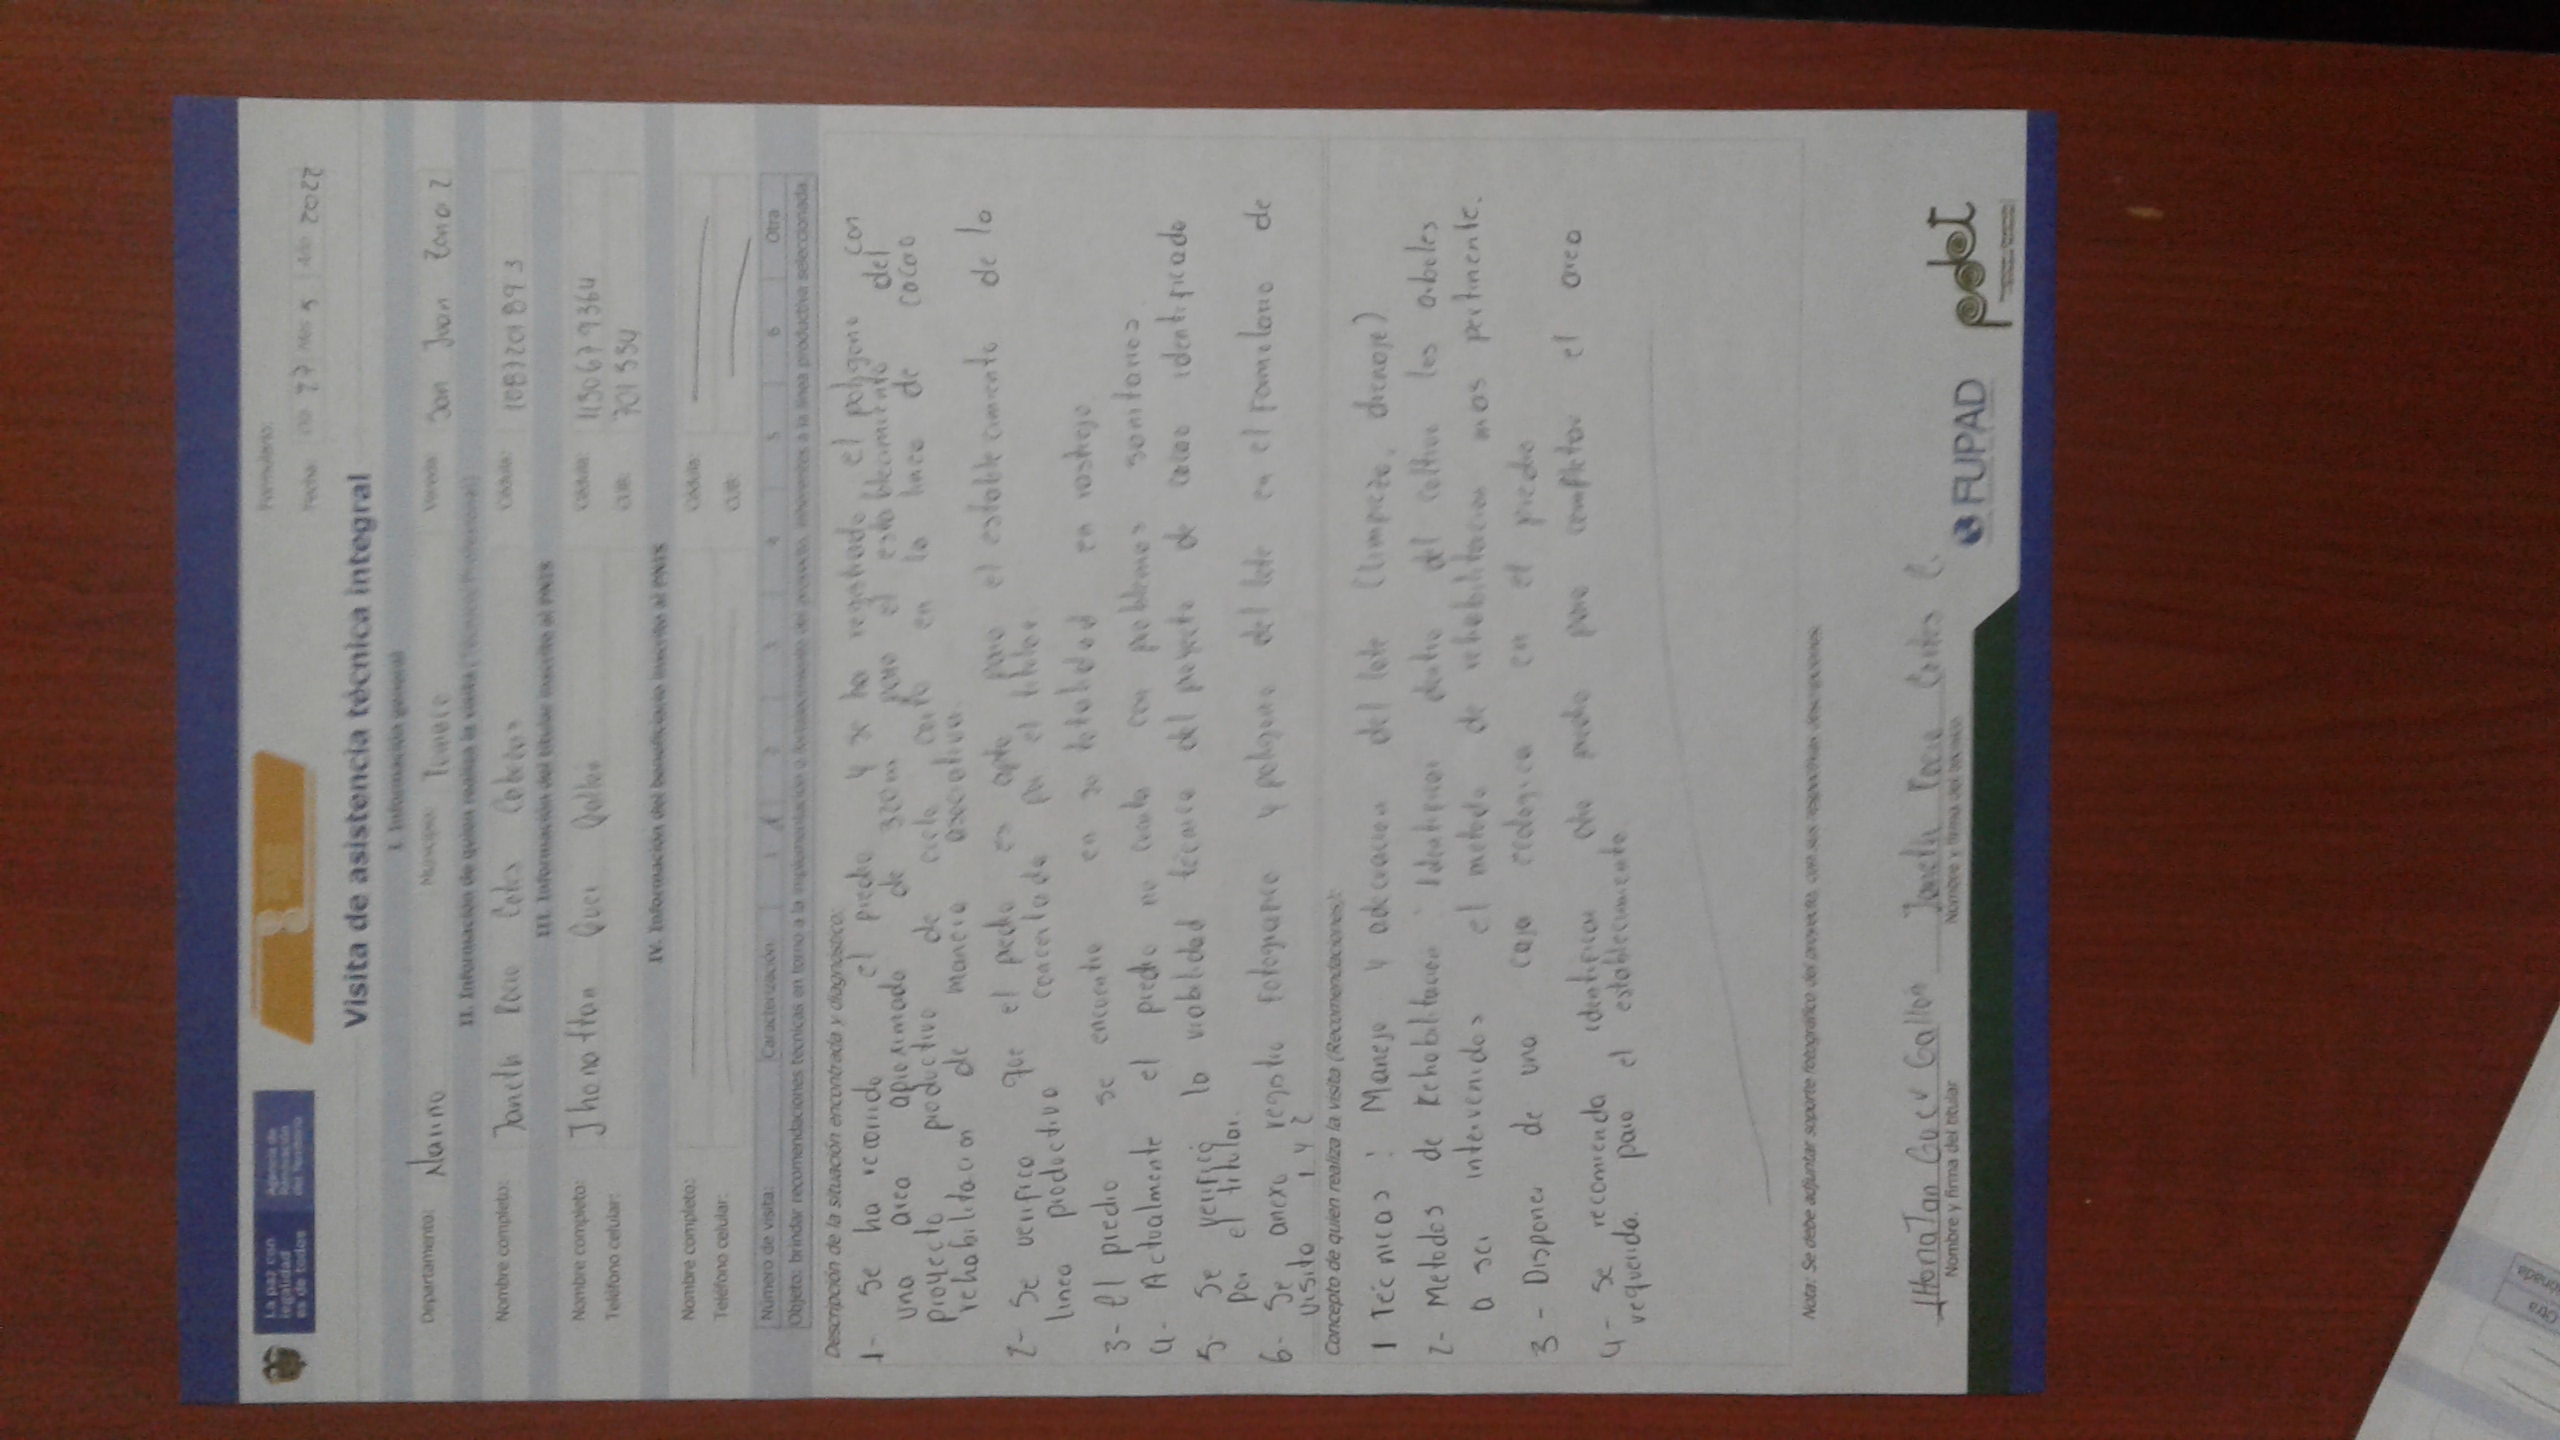 La paz con
legalidad
es de todos
Agencia de
Renovación
del Territorio
Formulario:
Fecha: 27 Mes 5 Año 2022
Visita de asistencia técnica integral
I. Información general
Departamento: Nariño Municipio: Vereda San Juan Zona 2
II. Información de quien realiza la visita (Técnico/Profesional)
Nombre completo: Janeth Rocio Cortes Cédula:
III. Información del titular inscrito al PNIS
Nombre completo: Jhonattan Cédula: 1150679364
Teléfono celular: CUB: 701554
IV. Información del beneficiario inscrito al PNIS
Nombre completo: Cédula:
Teléfono celular: CUB:
Número de visita: Caracterización 1 2 3 4 5 6 Otra
Objeto: brindar recomendaciones técnicas en torno a la implementación o fortalecimiento del proyecto, inherentes a la línea productiva seleccionada.
Descripción de la situación encontrada y diagnóstico:
1- Se ha recorrido el predio y se ha registrado el poligono con
una area aproximada de para el establecimiento del
proyecto productivo de ciclo corto en la linea de cacao
rehabilitacion de manera asociativa.
2- Se verifico que el predio es apto para el establecimiento de la
linea productiva concertada por el titular.
3- El predio se encuentra en su totalidad en rastrojo
4- Actualmente el predio no cuenta con problemas sanitarios
5- Se verificó la viabilidad técnica del proyecto de cacao identificado
por el titular.
6- Se anexa registro fotografico y poligono del lote en el formulario de
visita 1 y 2
Concepto de quien realiza la visita (Recomendaciones):
1 Técnicas : Manejo y adecuacion del lote (limpieza, drenaje)
2- Metodos de Rehabilitacion: identificar dentro del cultivo los arboles
a ser intervenidos el metodo de rehabilitacion mas pertinente.
3 - Disponer de una caja ecologica en el predio
4 - Se recomienda identificar otro predio para completar el area
requerida para el establecimiento.
Nota: Se debe adjuntar soporte fotográfico del proyecto, con sus respectivas descripciones.
Janeth Rocio Cortes C.
Nombre y firma del titular Nombre y firma del técnico
FUPAD
pdet